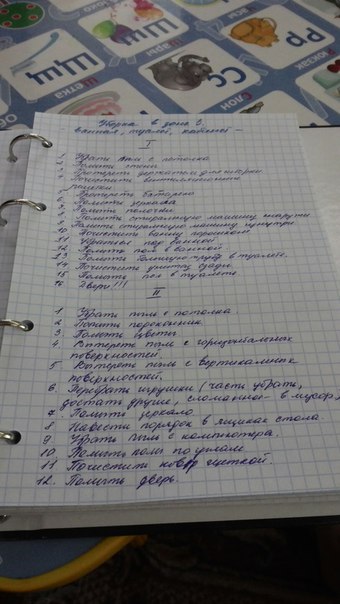 ЮКЗАК
Шары
Щетка
Слон
Уборка в зоне 3.
ванная, туалет, кабинет —
I
1. Убрать пыль с потолка
2. Помыть стены
3. Протереть держатель для шторки
4. Почистить вентиляционные
решетки
5. Протереть батарею
6. Помыть зеркала
7. Помыть полочки
8. Помыть стиральную машину снаружи
9. Помыть стиральную машину изнутри
10 Почистить ванну порошком
11 Убраться под ванной
12 Помыть пол в ванной
13 Помыть большую трубу в туалете.
14 Почистить унитаз сзади
15 Помыть пол в туалете
16 Двери!!!
II
1. Убрать пыль с потолка.
2 Помыть подоконник.
3 Полить цветы.
4 Вытереть пыль с горизонтальных
поверхностей.
5 Вытереть пыль с вертикальных
поверхностей.
6. Перебрать игрушки (часть убрать,
достать другие, сломанное - в мусор)
7 Помыть зеркало
8 Навести порядок в ящиках стола
9 Убрать пыль с компьютера.
10. Помыть полы по углам
11. Почистить ковер щеткой.
12. Помыть дверь.